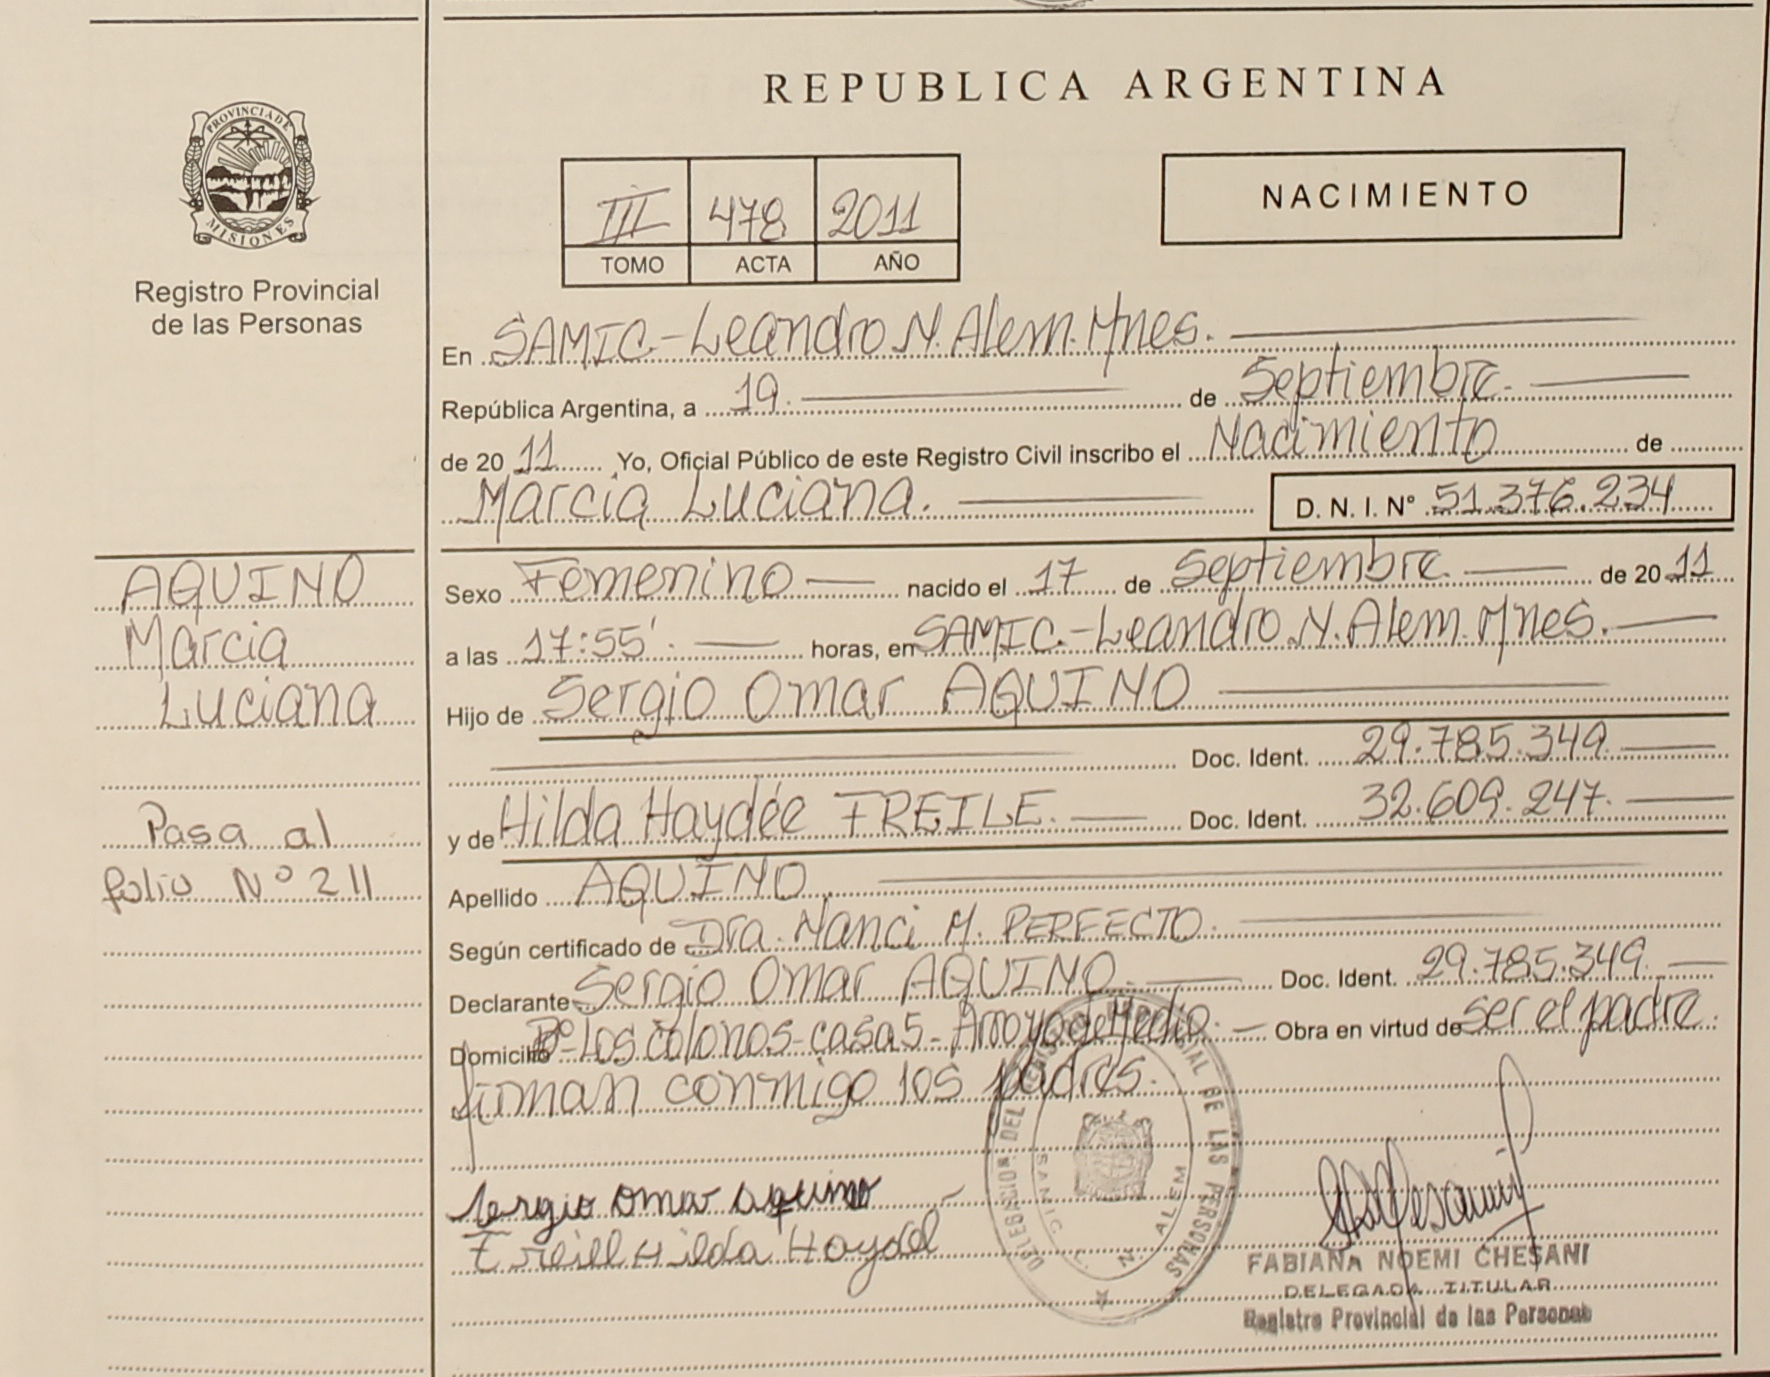 PROVINCIA DE
MISIONES
Registro Provincial
de las Personas
AQUINO
Marcia
Luciana
Pasa al
folio N° 211
REPUBLICA ARGENTINA
III 478 2011
TOMO ACTA AÑO
NACIMIENTO
En SAMIC.-Leandro N. Alem. Mnes.
República Argentina, a 19. de Septiembre.
de 20 11 Yo, Oficial Público de este Registro Civil inscribo el Nacimiento de
Marcia Luciana. D. N. I. N° 51.376.234
Sexo Femenino nacido el 17 de Septiembre de 20 11
a las 17:55'. horas, en SAMIC.-Leandro N. Alem. Mnes.
Hijo de Sergio Omar AQUINO
Doc. Ident. 29.785.349.
y de Hilda Haydée FREILE. Doc. Ident. 32.609.247.
Apellido AQUINO
Según certificado de Dra. Nanci M. PERFECTO.
Declarante Sergio Omar AQUINO. Doc. Ident. 29.785.349.
Domicilio B°-Los colonos-casa 5-Arroyo del Medio. Obra en virtud de ser el padre.
firman conmigo los padres.
Sergio Omar Aquino
DELEGACION DEL REGISTRO PROVINCIAL DE LAS PERSONAS
L. N. ALEM
FABIANA NOEMI CHESANI
DELEGADA TITULAR
Registro Provincial de las Personas